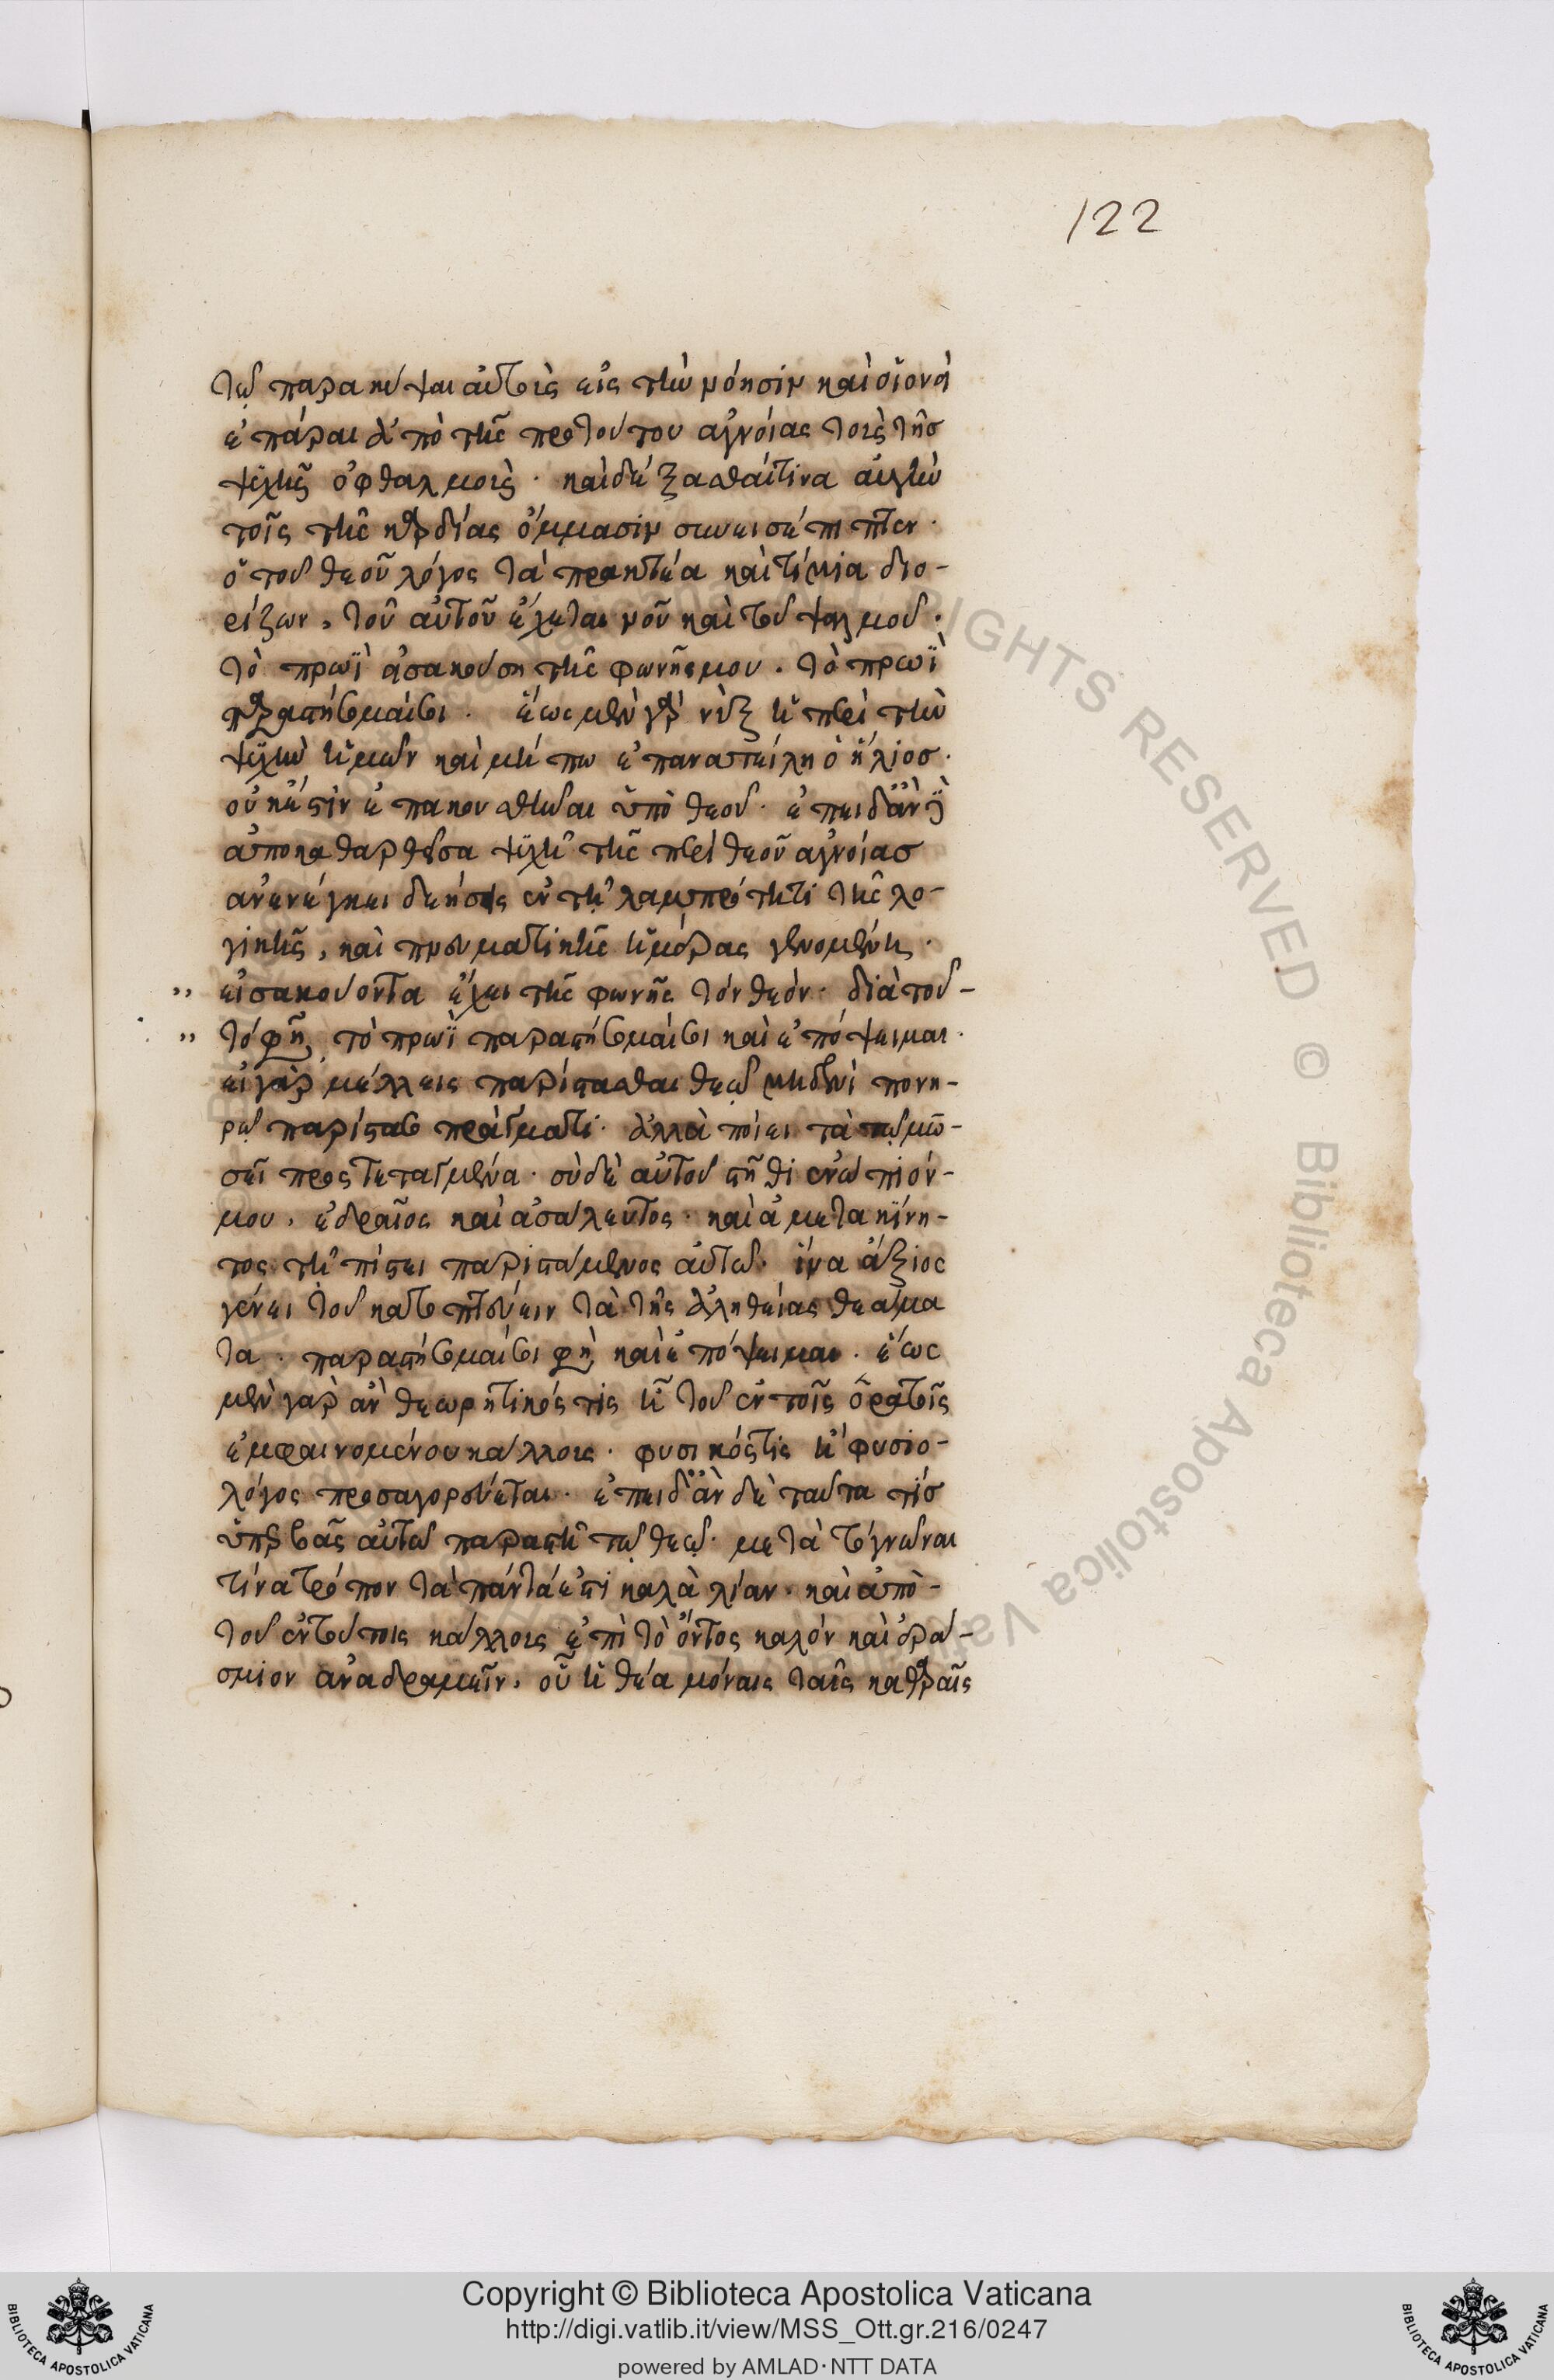 122
τῷ παρακύψαι αὐτοὺς εἰς τὴν νόησιν καὶ οἱονεὶ
ἐπάραι ἀπὸ τῆς πρὸ τούτου ἀγνοίας τοὺς τῆς
ψυχῆς ὀφθαλμούς· καὶ δέξασθαί τινα αὐγὴν
τοῖς τῆς καρδίας ὄμμασιν
ὁ τοῦ θεοῦ λόγος τὰ πρακτέα καὶ τίμια διο-
ρίζων, τοῦ αὐτοῦ ἔχεται νοῦ καὶ τοῦ ψαλμοῦ·
τὸ πρωῒ εἰσακούσῃ τῆς φωνῆς μου. τὸ πρωῒ
παραστήσομαί σοι· ἕως μὲν γὰρ νὺξ ᾖ περὶ τὴν
ψυχὴν ἡμῶν καὶ μήπω ἐπανατείλῃ ὁ ἥλιος·
οὐκ ἔστιν ἐπακουσθῆναι ὑπὸ θεοῦ· ἐπειδὰν ἡ
ἀποκαθαρθεῖσα ψυχὴ τῆς περὶ θεοῦ ἀγνοίας
ἀνενέγκει δεήσεις ἐν τῇ λαμπρότητι τῆς λο-
γικῆς, καὶ πνευματικῆς ἡμέρας γενομένη·
» εἰσακούοντα ἔχει τῆς φωνῆς τὸν θεόν· διὰ τοῦ-
» τό φησι τὸ πρωῒ παραστήσομαί σοι καὶ ἐπόψει με·
εἰ γὰρ μέλλεις παρίστασθαι θεῷ μηδενὶ πονη-
ρῷ παρίστασο πράγματι· ἀλλὰ ποίει τὰ τῷ μω-
σεῖ προστεταγμένα· σὺ δὲ αὐτοῦ στῆθι ἐνώπιόν-
μου, ἑδραῖος καὶ ἀσάλευτος· καὶ ἀμετακίνη-
τος τῇ πίστει παριστάμενος αὐτῷ· ἵνα ἄξιος
γένει τοῦ κατοπτεύειν τὰ τῆς ἀληθείας θεάμα
τα· παραστήσομαί σοι φησὶ καὶ ἐπόψει με· ἕως
μὲν γὰρ ἂν θεωρητικός τις ᾖ τοῦ ἐν τοῖς ὁρατοῖς
ἐμφαινομένου κάλλους· φυσικός τις ἢ φυσιο-
λόγος προσαγορεύεται· ἐπειδὰν δὲ ταῦτα τίς
ὑπερβὰς αὐτῷ παραστῇ τῷ θεῷ· μετὰ τὸ γνῶναι
τίνα τρόπον τὰ πάντά ἐστι καλὰ λίαν· καὶ ἀπὸ-
τοῦ ἐν τούτοις κάλλους ἐπὶ τὸ ὄντως καλὸν καὶ ἐρά-
σμιον ἀναδραμεῖν, οὗ ἡ θέα μόναις ταῖς καθαραῖς
Copyright © Biblioteca Apostolica Vaticana
http://digi.vatlib.it/view/MSS_Ott.gr.216/0247
powered by AMLAD·NTT DATA